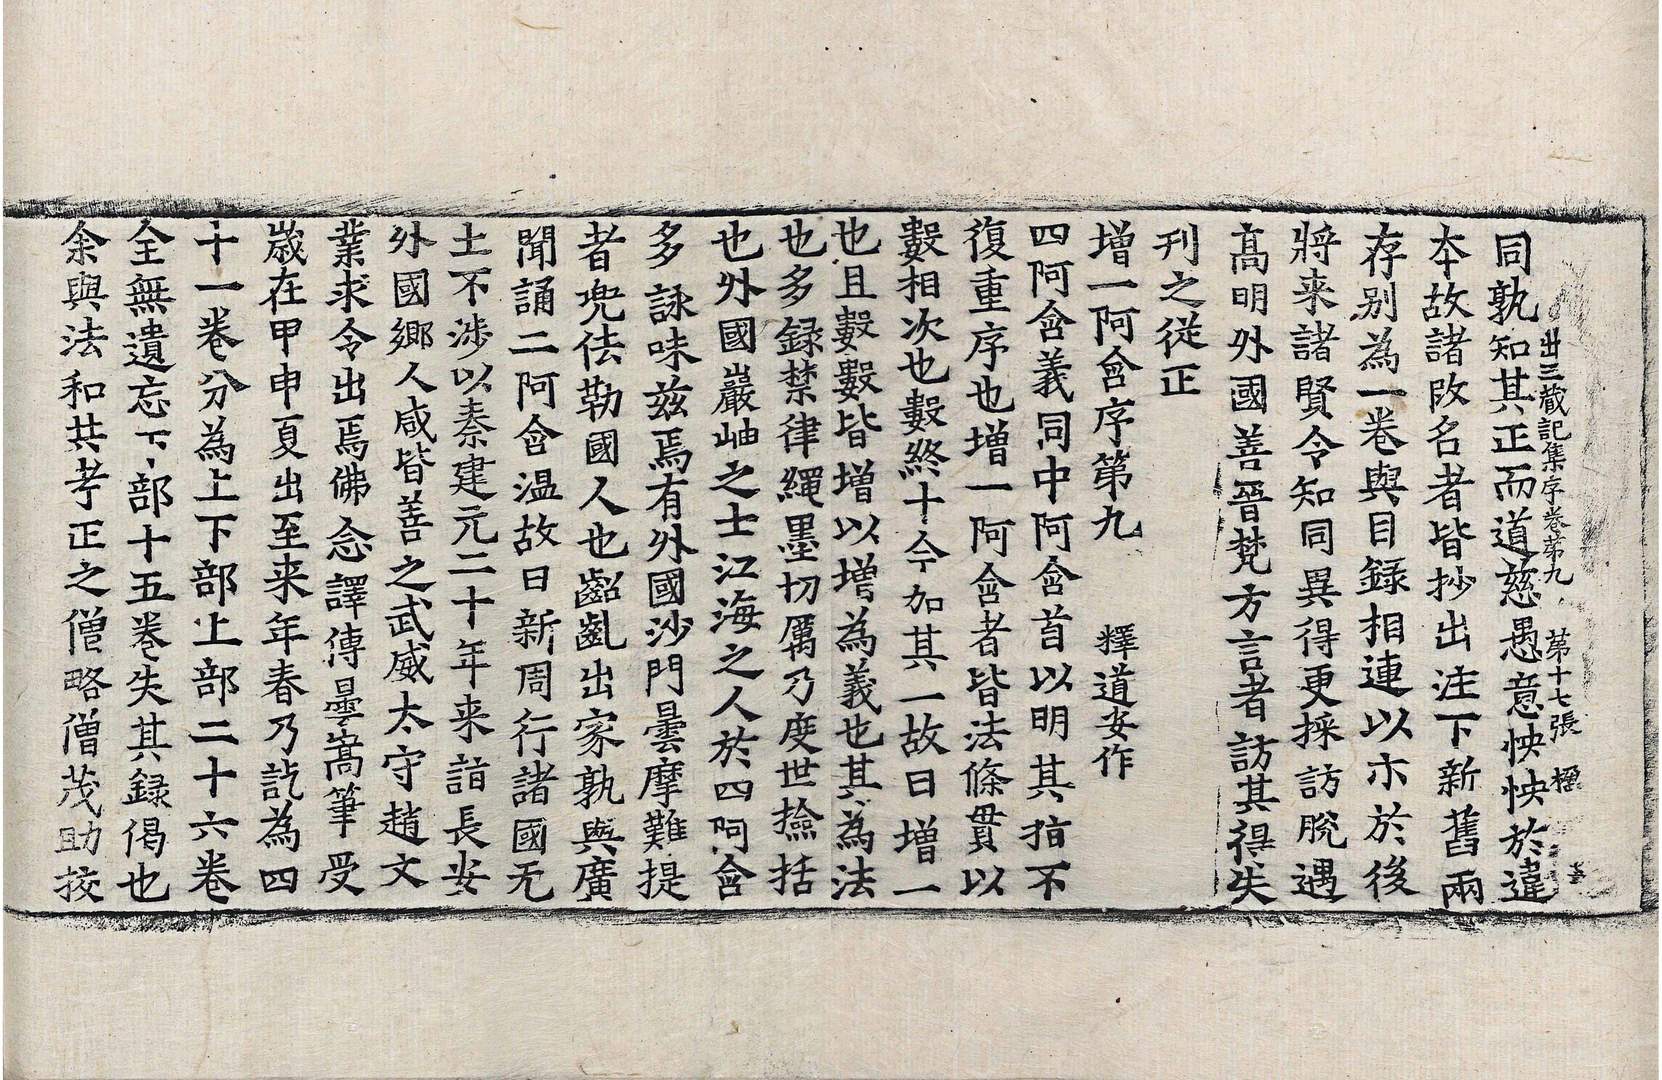 出三藏記集序卷第九 第十七張 楹
同孰知其正而道慈愚意怏怏於違
本故諸改名者皆抄出注下新舊兩
存别為一卷與目録相連以示於後
將来諸賢令知同異得更採訪脫遇
高明外國善晉梵方言者訪其得失
刊之従正
增一阿含序第九 擇道安作
四阿含義同中阿含首以明其指不
復重序也增一阿含者皆法條貫以
數相次也數終十令加其一故曰增一
也且數數皆增以增為義也其為法
也多録禁律繩墨切厲乃度世撿括
也外國巖岫之士江海之人於四阿含
多詠味兹焉有外國沙門曇摩難提
者兜佉勒國人也齠齓出家孰與廣
聞誦二阿含温故日新周行諸國无
土不涉以秦建元二十年来詣長安
外國鄉人咸皆善之武威太守趙文
業求令出焉佛念譯傳曇嵩筆受
歲在甲申夏出至来年春乃訖為四
十一卷分為上下部上部二十六卷
全無遺忘下部十五卷失其録偈也
余與法和共考正之僧略僧茂助挍